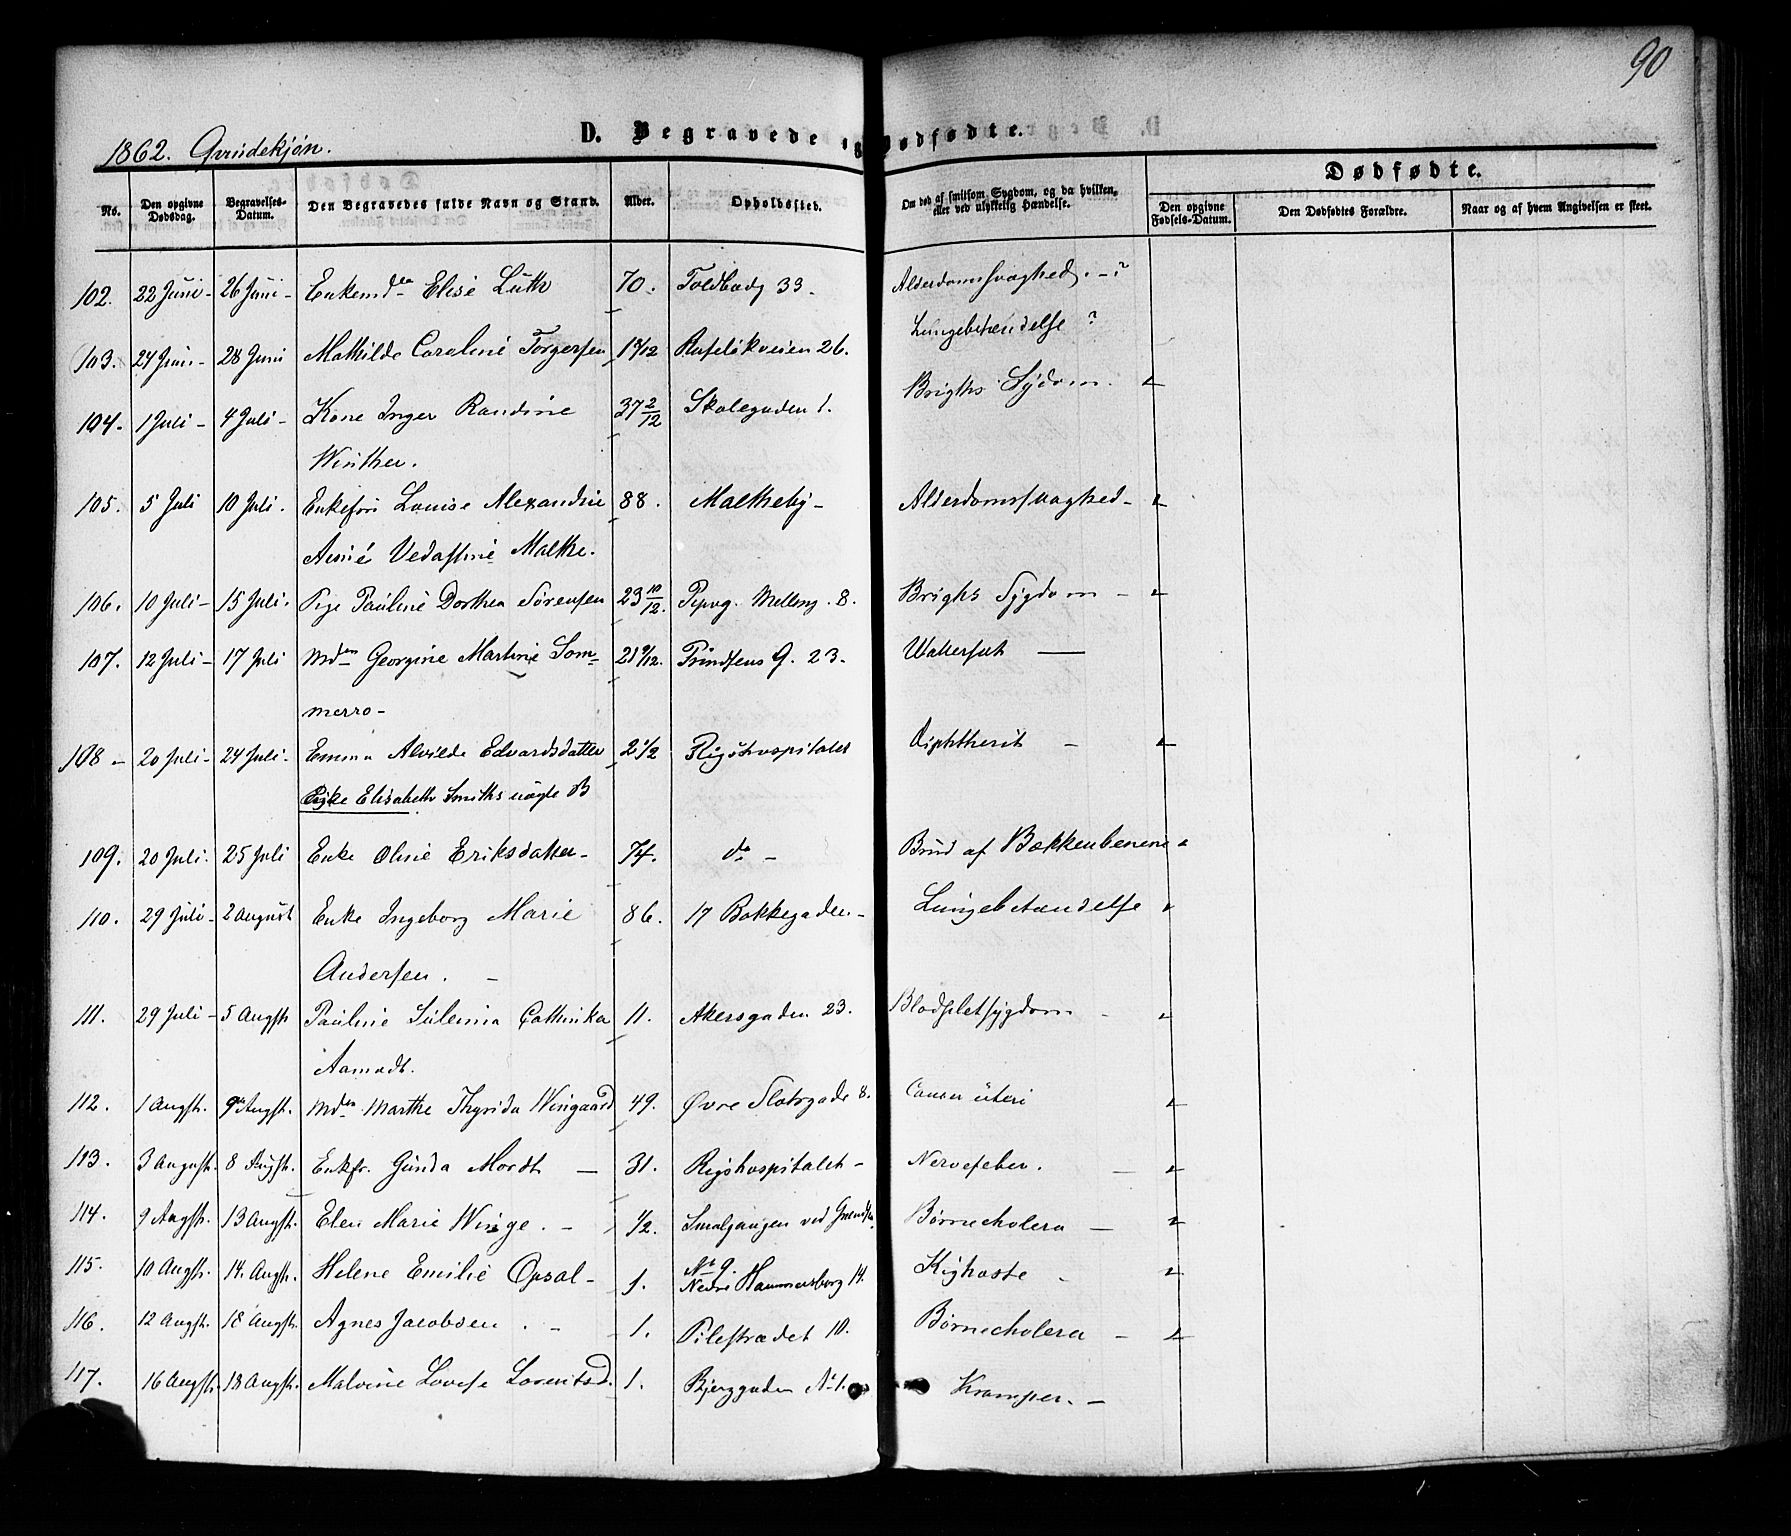 90
1862. Qvindekjøn.
D. Begravede og Dødfødte.
No.
Den opgivne Dødsdag.
Begravelses-Datum.
Den Begravedes fulde Navn og Stand.
Alder.
Opholdssted.
Om død af smitsom Sygdom, og da hvilken, eller ved ulykkelig Hændelse.
Dødfødte.
Den opgivne Fødsels-Datum.
Den Dødfødtes Forældre.
Naar og af hvem Angivelsen er skeet.
102. 22 Juni - 26 Juni - Enkemdm Elise Lüth 70. Toldbodg 33. Alderdomssvaghed. - ?
103. 24 Juni - 28 Juni Mathilde Caroline Torgersen Ruseløkveien 26. Lungebetændelse ?
104. 1 Juli - 4 Juli - Kone Inger Randine 37 2/12 Skolegaden 1. Brigths Sydom.
Winther.
105. 5 Juli 10 Juli. Enkefru Louise Alexandrine 88. Maltheby - Alderdomssvaghed -
Aimé Vedastine Malthe.
106. 10 Juli - 15 Juli. Pige Pauline Dorthea Sørensen 23 10/12. Pipvg. Mellemg. 8. Brigths Sygdom -
107. 12 Juli - 17 Juli Mdm Georgine Martine Som- 21 9/12. Prindsens G. 23. Wattersot —
merro -
108 - 20 Juli - 24 Juli - Emma Alvilde Edvardsdatter 2 1/2 Rigshospitalet Diphtherit -
Pige Elisabeth Smiths uægte B
109. 20 Juli. 25 Juli Enke Oline Eriksdatter - 74. do - Brud af Bækkenbenene
110. 29 Juli - 2 August Enke Ingeborg Marie 86. 17 Bakkegaden - Lungebetændelse
Andersen. -
111. 29 Juli - 5 Augst Pauline Cathinka 11. Akersgaden 23. Blodpletsygdom
Aamodt.
112. 1 Augst. 9de Augst. Mdm Marthe Thyrida Wingaard 49. Øvre Slotsgade 8. Cancer üteri
113. 3 August. 8 Augst. Enkfr. Günda Mordt — 31. Rigshospitalet - Nervefeber.
114. 9 Augst. 13 Augst. Elen Marie Winge. - 1/2. Smalgangen ved Børnecholera —
115. 10 Augst. 14. Augst. Helene Emilie Opsal - 1. No 9. Nedre Hammersborg 14. Kighoste
116. 12 Augst. 18 Augst. Agnes Jacobsen. - 1. Pilestrædet 10. Børnecholera -
117. 16 Augst. 18 Augst. Malvine Lovise Lorentsd. 1. Bjerggaden No 1. Kramper. -